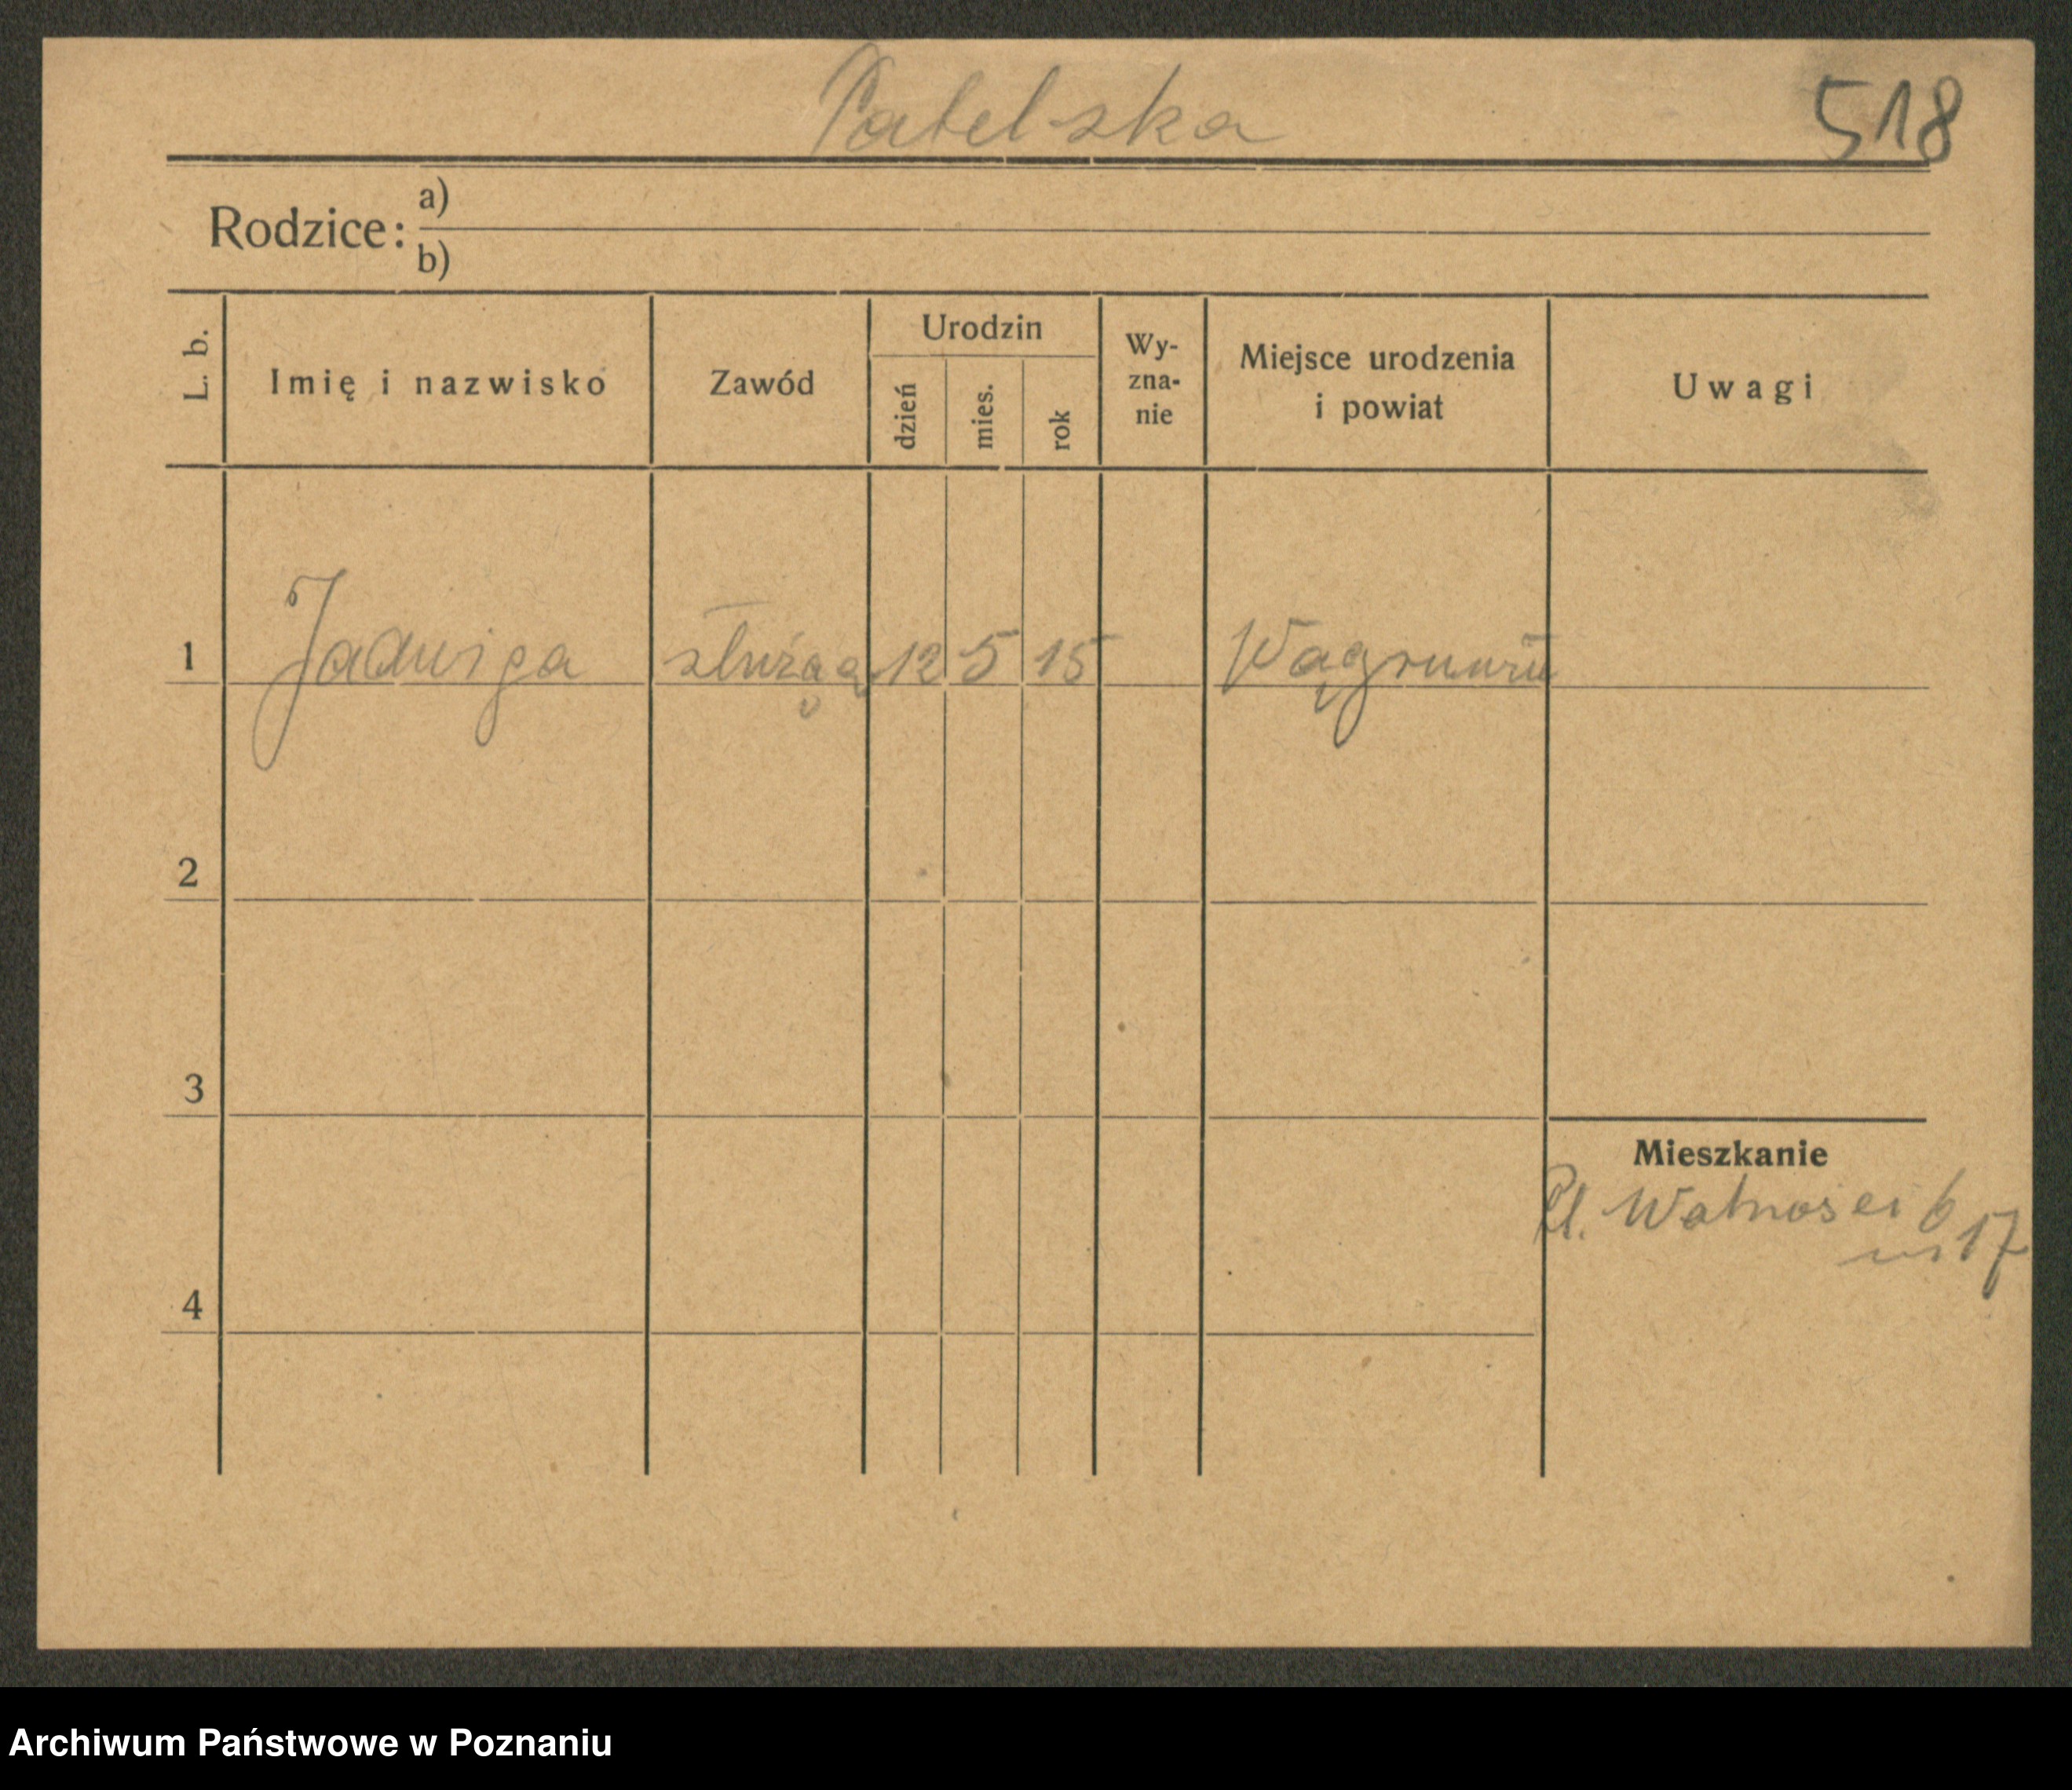 Patelska 518
Rodzice: a)
b)
L. b. Imię i nazwisko Zawód Urodzin dzień mies. rok Wy-zna-nie Miejsce urodzenia i powiat Uwagi
1 Jadwiga służąca 12 5 15
2
3
Mieszkanie
Pl. Wolności 6
m 17
4
Archiwum Państwowe w Poznaniu